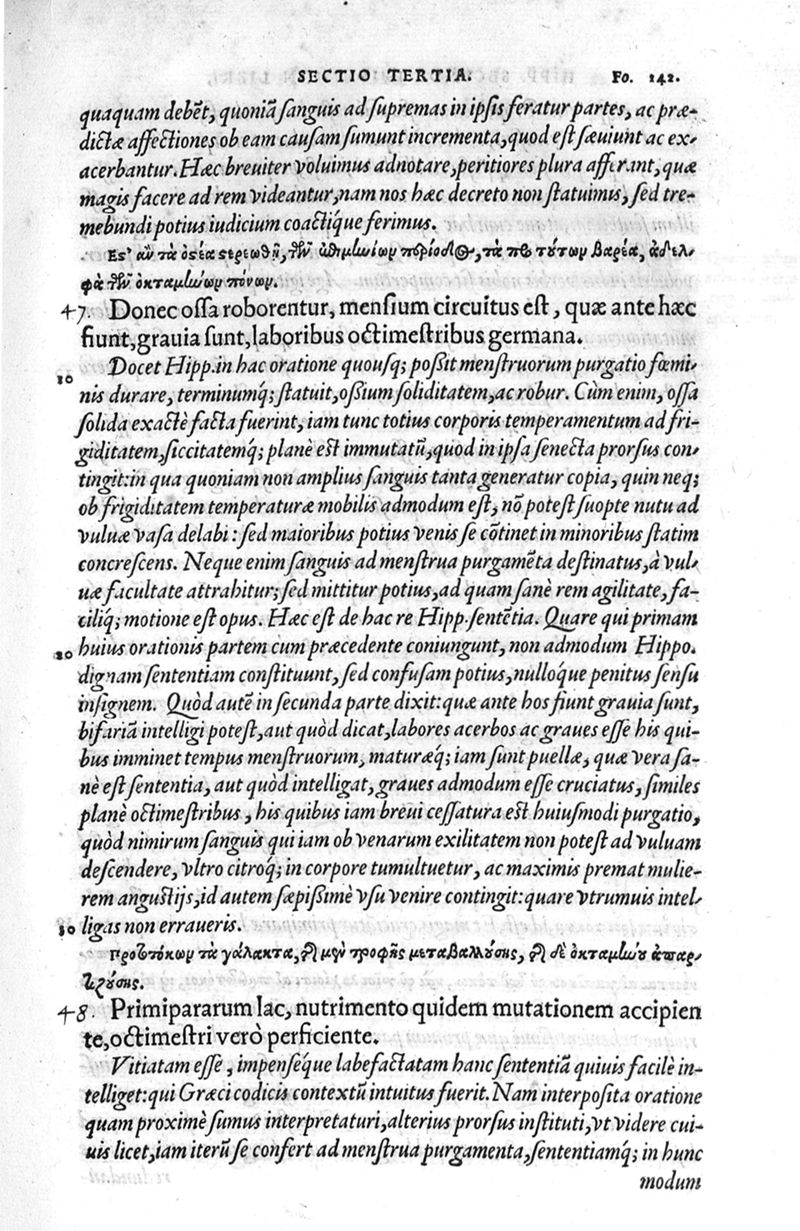 SECTIO TERTIA. Fo. 142.
quaquam debẽt, quoniã sanguis ad supremas in ipsis feratur partes, ac præ-
dictæ affectiones ob eam causam sumunt incrementa, quod est sæuiunt ac ex-
acerbantur. Hæc breuiter voluimus adnotare, peritiores plura afferant, quæ
magis facere ad rem videantur, nam nos hæc decreto non statuimus, sed tre-
mebundi potius iudicium coactíque ferimus.
Εςʼ ἂν τὰ ὀςέα ςερεωθῇ, τῶν ἐπιμηνίων περίοδος, τὰ πρὸ τούτων βαρέα, ἀδελ-
φὰ τῶν ὀκταμήνων πόνων.
47. Donec ossa roborentur, mensium circuitus est, quæ ante hæc
fiunt, grauia sunt, laboribus octimestribus germana.
10 Docet Hipp. in hac oratione quousq; possit menstruorum purgatio fœmi-
nis durare, terminumq́; statuit, ossium soliditatem, ac robur. Cùm enim, ossa
solida exactè facta fuerint, iam tunc totius corporis temperamentum ad fri-
giditatem, siccitatemq́; planè est immutatũ, quod in ipsa senecta prorsus con-
tingit: in qua quoniam non amplius sanguis tanta generatur copia, quin neq;
ob frigiditatem temperaturæ mobilis admodum est, nõ potest suopte nutu ad
vuluæ vasa delabi: sed maioribus potius venis se cõtinet in minoribus statim
concrescens. Neque enim sanguis ad menstrua purgamẽta destinatus, à vul-
uæ facultate attrahitur; sed mittitur potius, ad quam sanè rem agilitate, fa-
ciliq́; motione est opus. Hæc est de hac re Hipp. sentẽtia. Quare qui primam
20 huius orationis partem cum præcedente coniungunt, non admodum Hippo.
dignam sententiam constituunt, sed confusam potius, nullóque penitus sensu
insignem. Quòd autẽ in secunda parte dixit: quæ ante hos fiunt grauia sunt,
bifariã intelligi potest, aut quòd dicat, labores acerbos ac graues esse his qui-
bus imminet tempus menstruorum, maturæq́; iam sunt puellæ, quæ vera sa-
nè est sententia, aut quòd intelligat, graues admodum esse cruciatus, similes
planè octimestribus, his quibus iam breui cessatura est huiusmodi purgatio,
quòd nimirum sanguis qui iam ob venarum exilitatem non potest ad vuluam
descendere, vltro citroq́; in corpore tumultuetur, ac maximis premat mulie-
rem angustijs, id autem sæpissimè vsu venire contingit: quare vtrumuis intel-
30 ligas non erraueris.
Πρωτοτόκων τὰ γάλακτα, τῆς μὲν τροφῆς μεταβαλλούσης, τοῦ δὲ ὀκταμήνου ἀπαρ-
τιζούσης.
48. Primipararum lac, nutrimento quidem mutationem accipien
te, octimestri verò perficiente.
Vitiatam esse, impenséque labefactatam hanc sententiã quiuis facilè in-
telliget: qui Græci codicis contextũ intuitus fuerit. Nam interposita oratione
quam proximè sumus interpretaturi, alterius prorsus instituti, vt videre cui-
uis licet, iam iterũ se confert ad menstrua purgamenta, sententiamq́; in hunc
modum